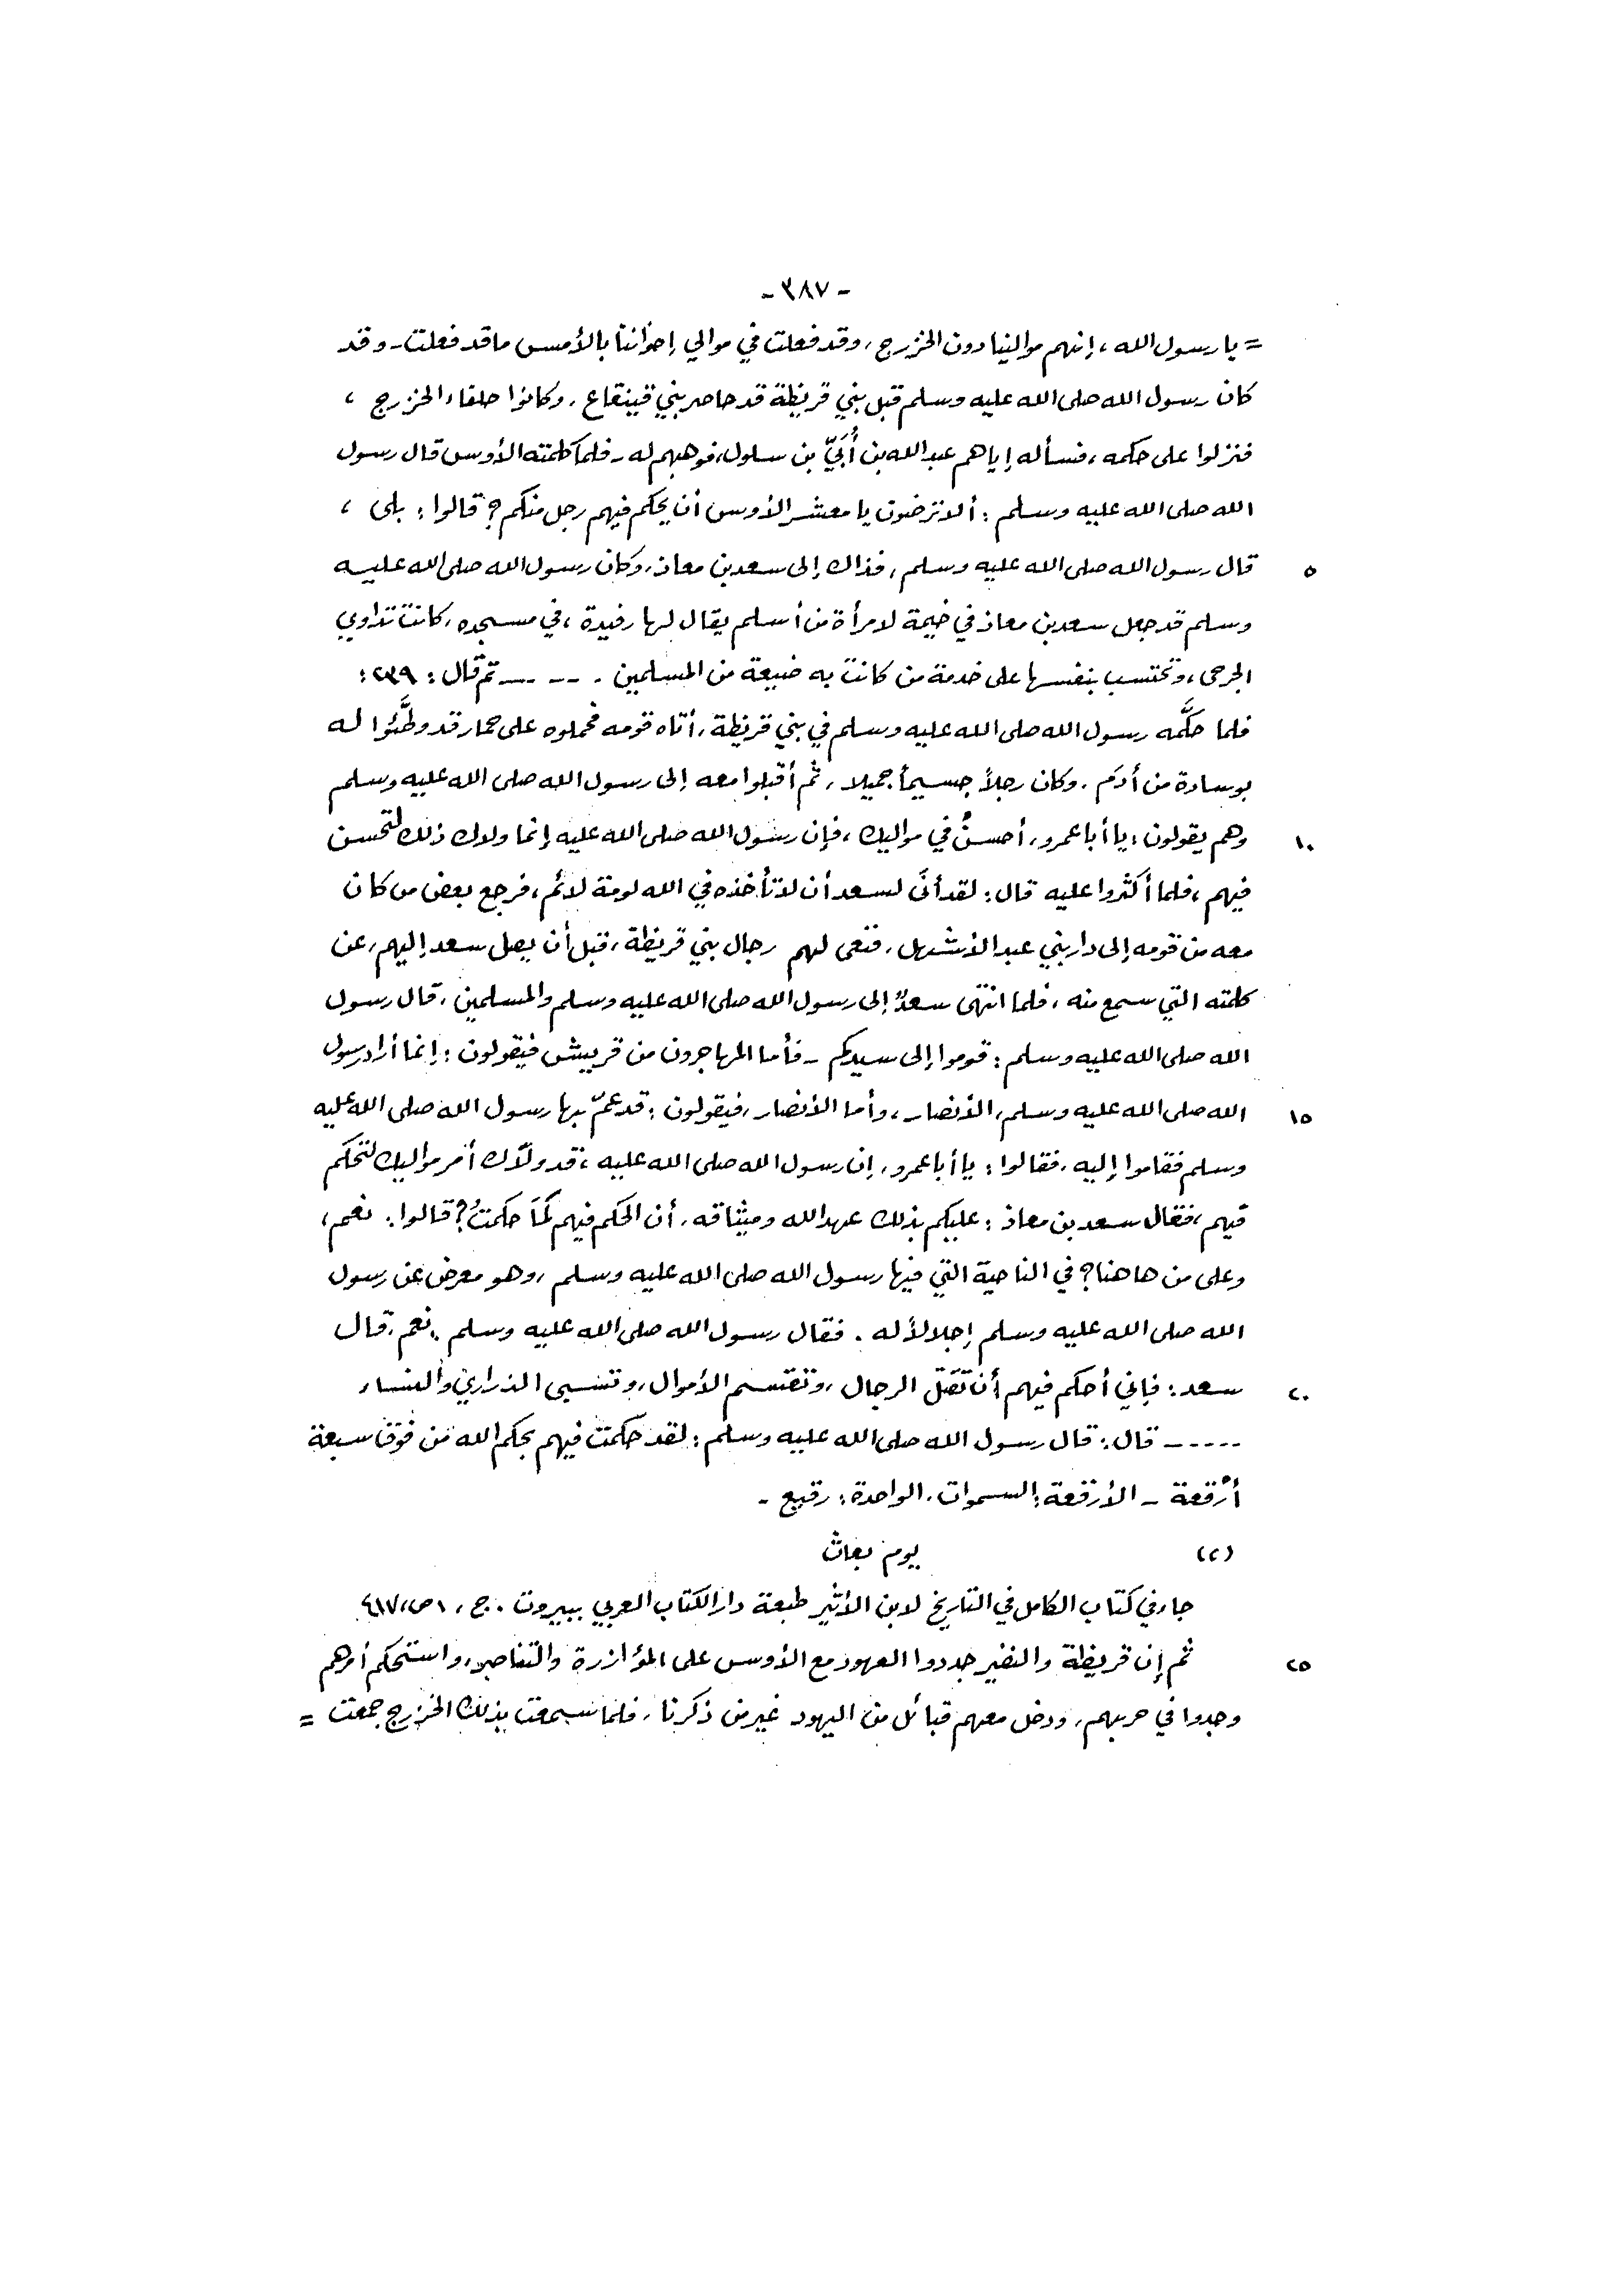 - ٣٨٧ -
= يا رسول الله ، إنهم موالينا دون الخزرج ، وقد فعلت في موالي إخواننا بالأمس ما قد فعلت - وقد
كان رسول الله صلى الله عليه وسلم قبل بني قريظة قد حاصر بني قينقاع ، وكانوا حلفاء الخزرج ،
فنزلوا على حكمه ، فسأله إياهم عبد الله بن أُبَيّ بن سلول ، فوهبهم له - فلما كلمته الأوس قال رسول
الله صلى الله عليه وسلم : ألا ترضون يا معشر الأوس أن يحكم فيهم رجل منكم ؟ قالوا : بلى ،
٥ قال رسول الله صلى الله عليه وسلم ، فذاك إلى سعد بن معاذ ، وكان رسول الله صلى الله عليه
وسلم قد جعل سعد بن معاذ في خيمة لامرأة من أسلم يقال لها رفيدة ، في مسجده ، كانت تداوي
الجرحى ، وتحتسب بنفسها على خدمة من كانت به ضيعة من المسلمين . - - - - ثم قال : ٢٣٩ :
فلما حكَّمه رسول الله صلى الله عليه وسلم في بني قريظة ، أتاه قومه فحملوه على حمار قد وطَّئوا له
بوسادة من أدَم . وكان رجلاً جسيماً جميلا ، ثم أقبلوا معه إلى رسول الله صلى الله عليه وسلم
١٠ وهم يقولون : يا أبا عمرو ، أحسنْ في مواليك ، فإن رسول الله صلى الله عليه إنما ولاك ذلك لتحسن
فيهم ، فلما أكثروا عليه قال : لقد أنَى لسعد أن لا تأخذه في الله لومة لائم ، فرجع بعض من كان
معه من قومه إلى دار بني عبد الأشهل ، فنعى لهم رجال بني قريظة ، قبل أن يصل سعد إليهم ، عن
كلمته التي سمع منه ، فلما انتهى سعدٌ إلى رسول الله صلى الله عليه وسلم والمسلمين ، قال رسول
الله صلى الله عليه وسلم : قوموا إلى سيدكم - فأما المهاجرون من قريش فيقولون : إنما أراد رسول
١٥ الله صلى الله عليه وسلم ، الأنصار ، وأما الأنصار ، فيقولون : قد عمّ بها رسول الله صلى الله عليه
وسلم فقاموا إليه ، فقالوا : يا أبا عمرو ، إن رسول الله صلى الله عليه ، قد ولاّك أمر مواليك لتحكم
فيهم ، فقال سعد بن معاذ : عليكم بذلك عهد الله وميثاقه ، أن الحكم فيهم كَمَا حكمتُ ؟ قالوا : نعم ،
وعلى من هاهنا ؟ في الناحية التي فيها رسول الله صلى الله عليه وسلم ، وهو معرض عن رسول
الله صلى الله عليه وسلم إجلالاً له . فقال رسول الله صلى الله عليه وسلم : نعم ، قال
٢٠ سعد : فإني أحكم فيهم أن تُقتَل الرجال ، وتقتسم الأموال ، وتسبى الذراري والنساء
- - - - - قال : قال رسول الله صلى الله عليه وسلم : لقد حكمت فيهم بحكم الله من فوق سبعة
أرْقعة - الأرقعة : السموات ، الواحدة : رقيع -
(٢) يوم بعاث
جاء في كتاب الكامل في التاريخ لابن الأثير طبعة دار الكتاب العربي ببيروت . ج ، ١ ص ، ٤١٧
٢٥ ثم إن قريظة والنضير جددوا العهود مع الأوس على المؤازرة والتناصر ، واستحكم أمرهم
وجدوا في حربهم ، ودخل معهم قبائل من اليهود غير من ذكرنا ، فلما سمعت بذلك الخزرج جمعت =